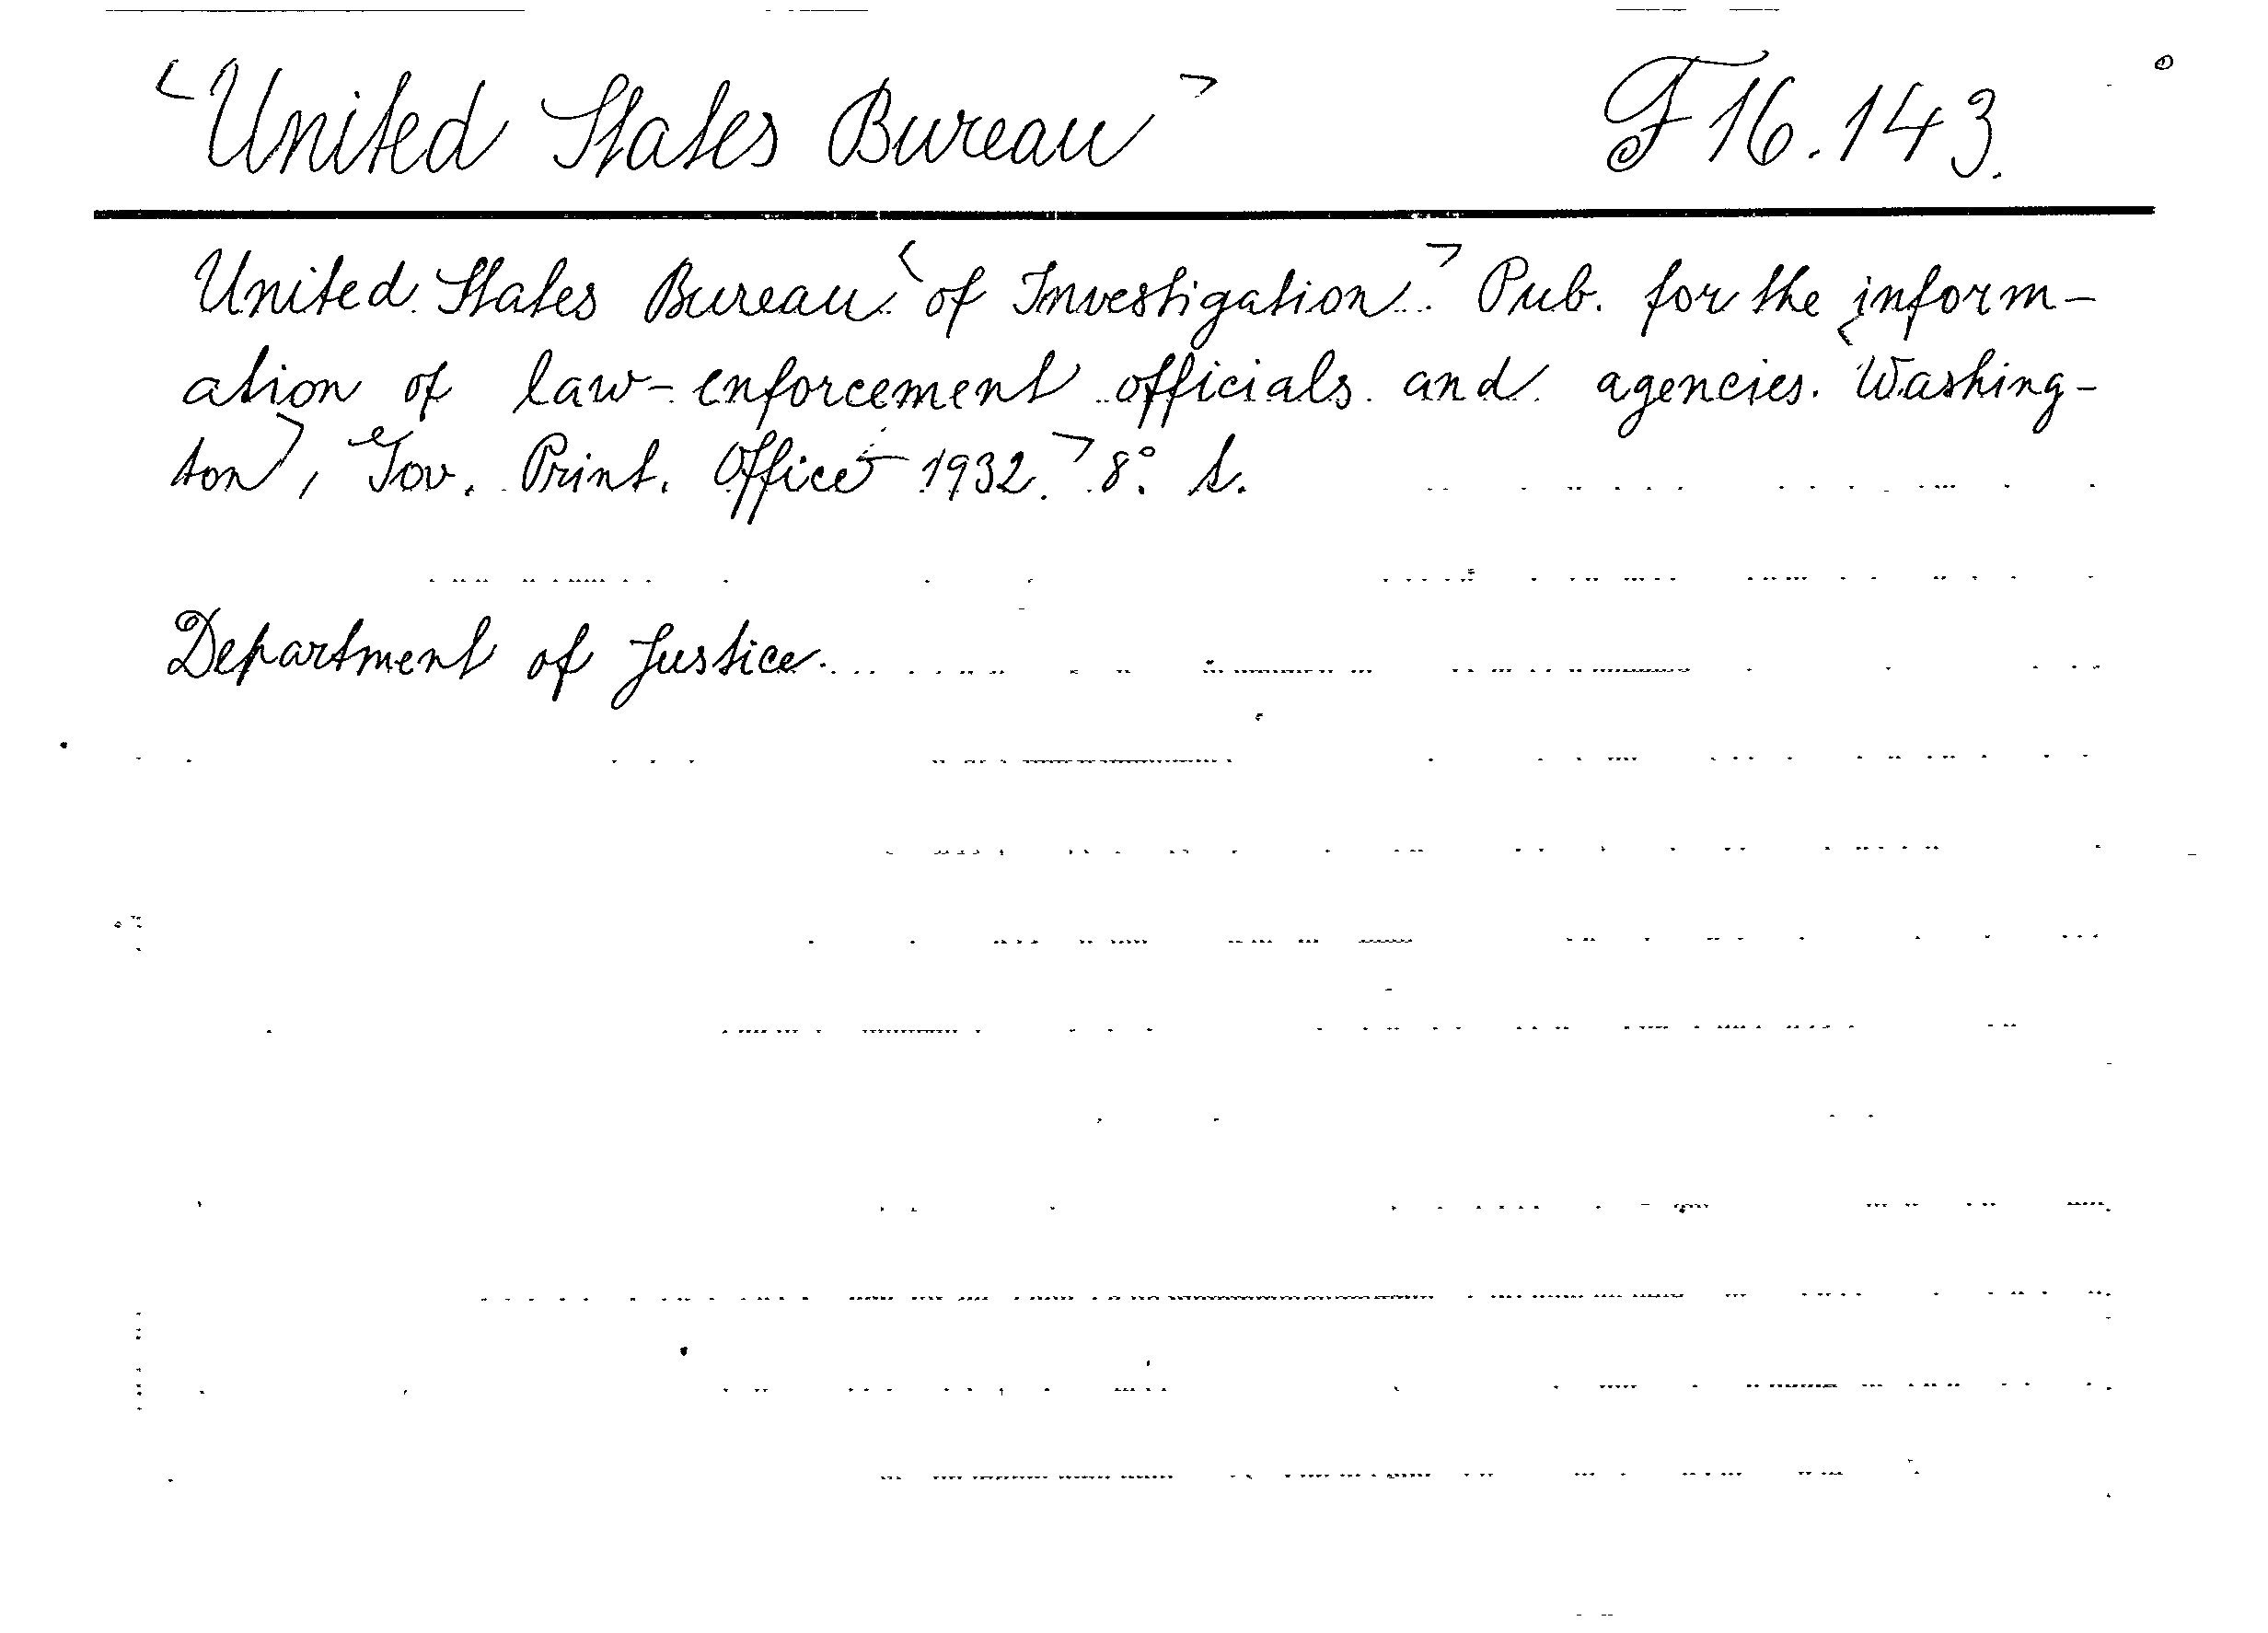 <United States Bureau> F 16.143.
United States Bureau <of Investigation.> Pub. for the inform-
ation of law-enforcement officials and agencies. <Washing-
ton>, Gov. Print. Office <1932.> 8:° s.
Department of Justice.